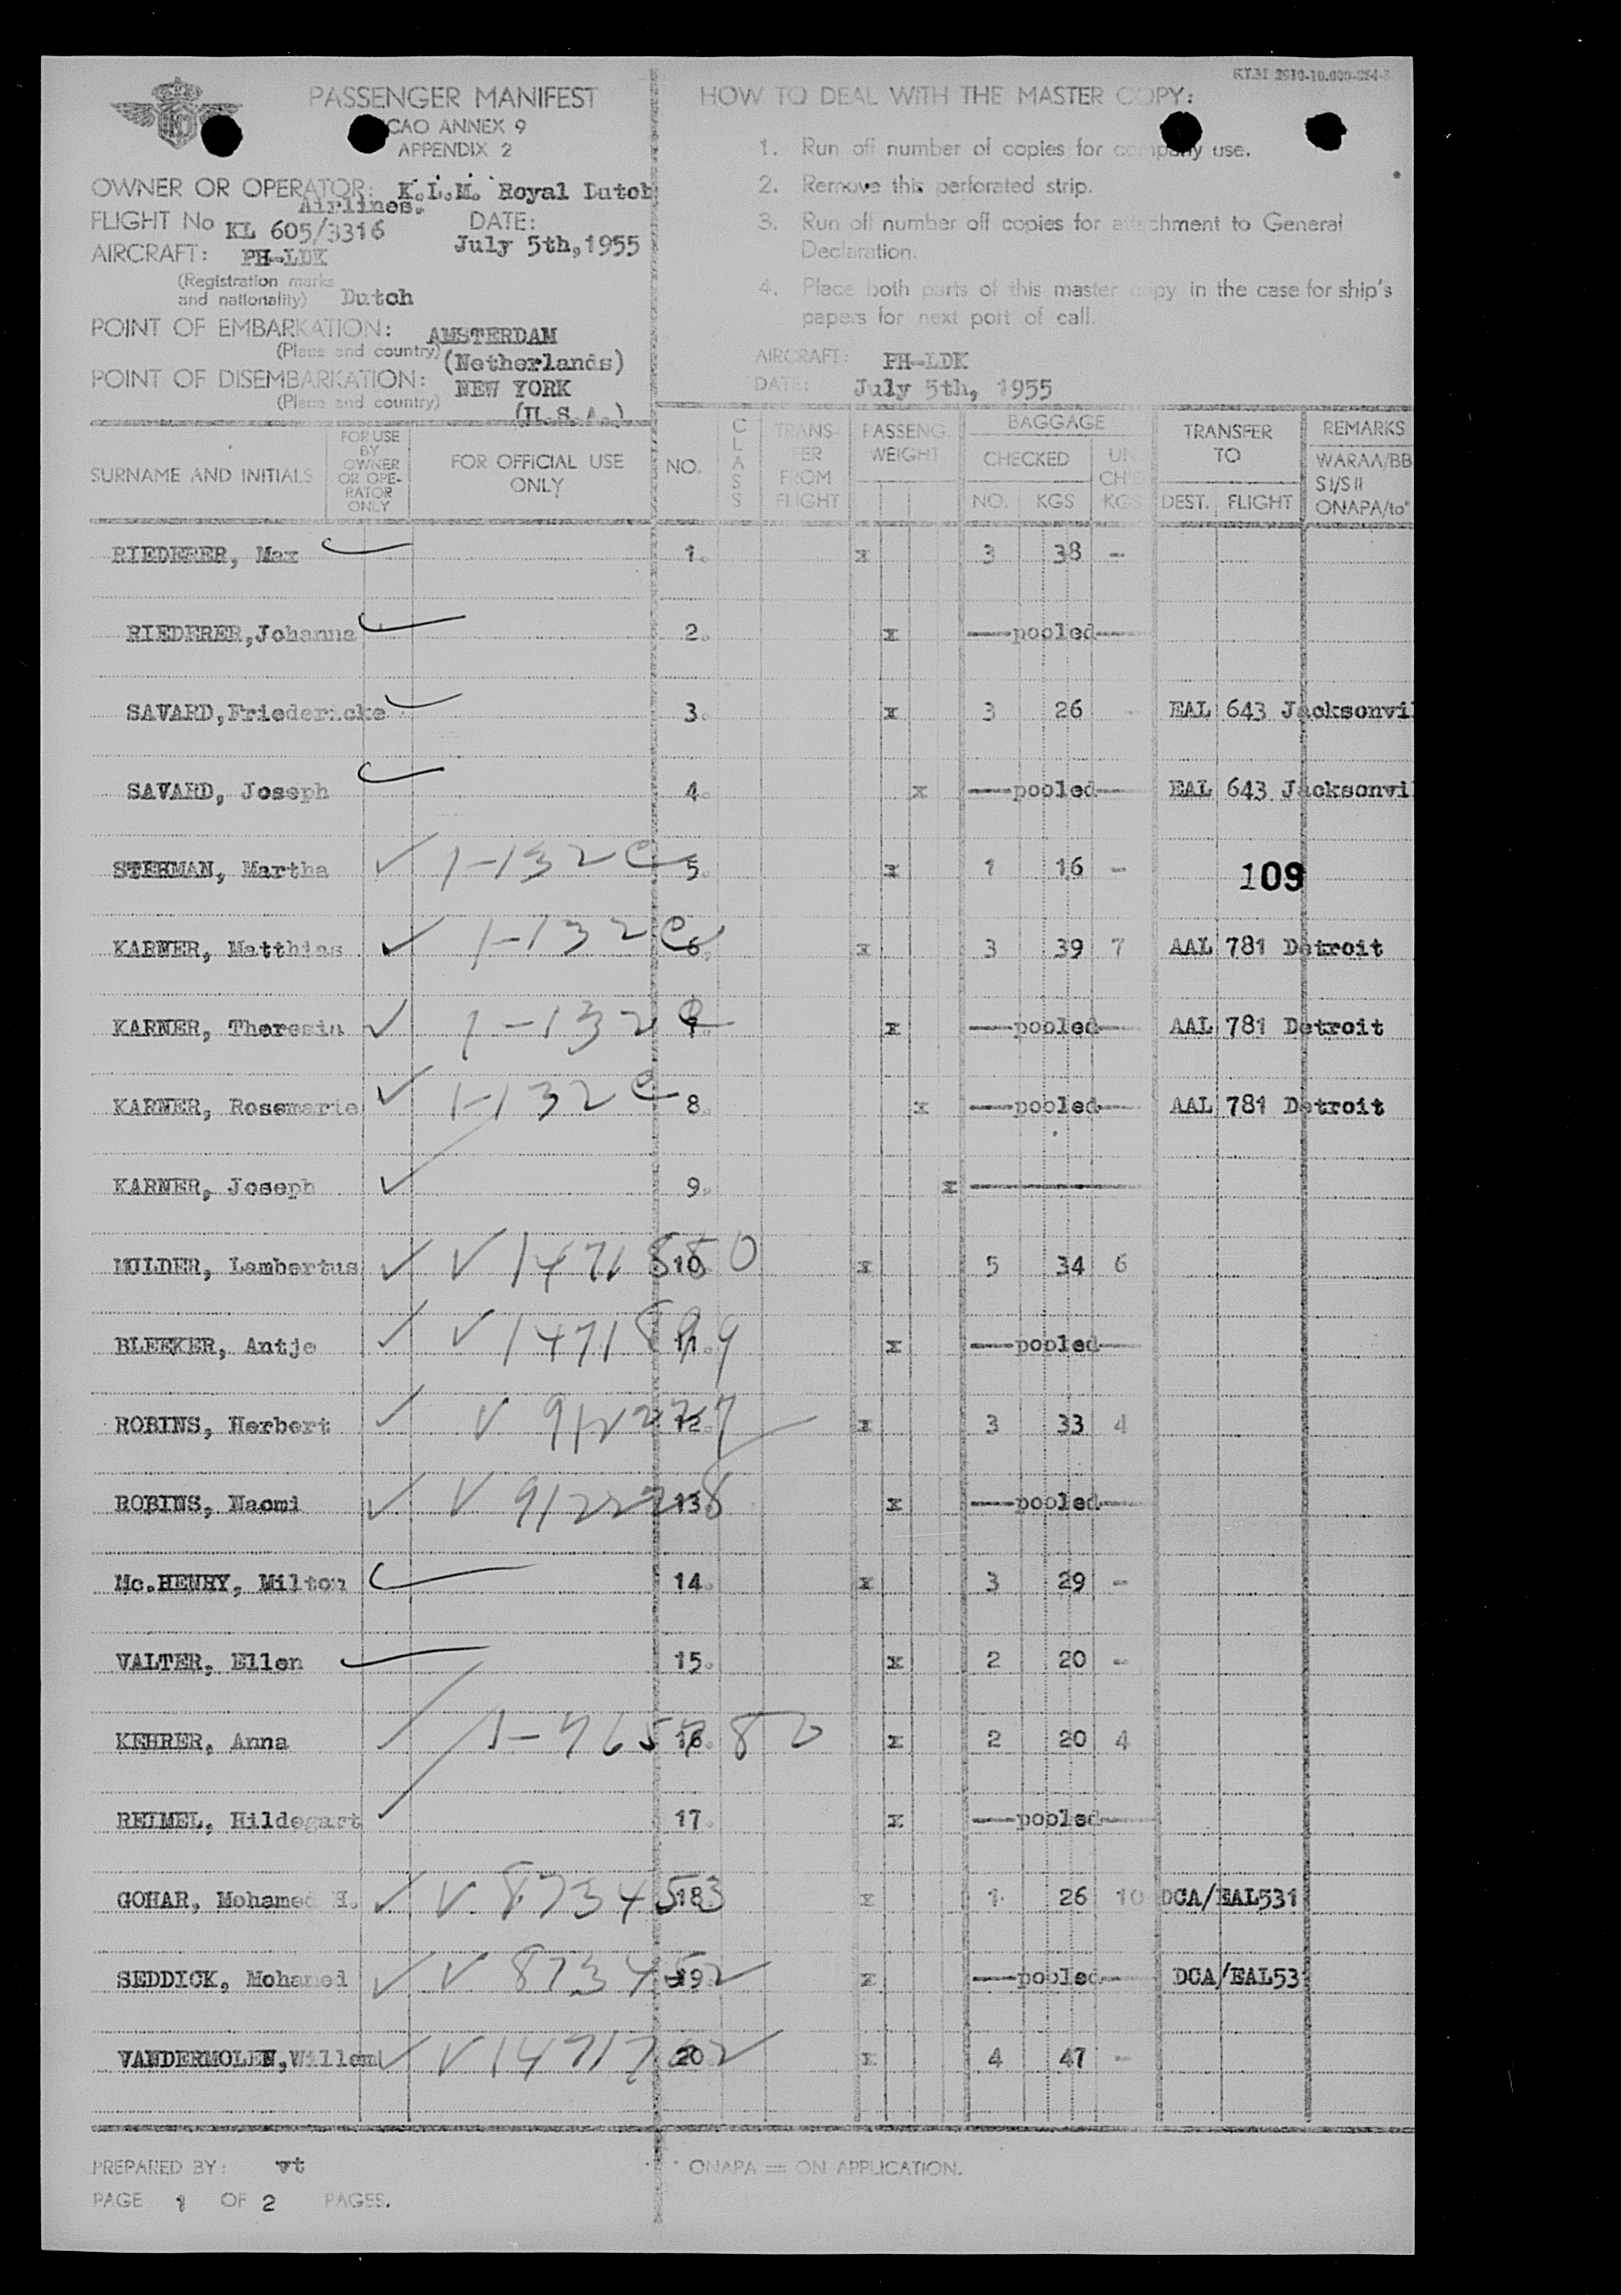 KLM 2910-10.000-254-
PASSENGER MANIFEST
ICAO ANNEX 9
APPENDIX 2
OWNER OR OPERATOR: K.L.M. Royal Dutch
Airlines.
FLIGHT No KL 605/3316 DATE:
July 5th,1955
AIRCRAFT: PH-LDK
(Registration marks
and nationality) Dutch
POINT OF EMBARKATION: AMSTERDAM
(Place and country) (Netherlands)
POINT OF DISEMBARKATION: NEW YORK
(Place and country) (U.S.A.)
HOW TO DEAL WITH THE MASTER COPY:
1. Run off number of copies for company use.
2. Remove this perforated strip.
3. Run off number off copies for attachment to General
Declaration.
4. Place both parts of this master copy in the case for ship's
papers for next port of call.
AIRCRAFT: PH-LDK
DATE: July 5th, 1955
SURNAME AND INITIALS
FOR USE
BY
OWNER
OR OPE-
RATOR
ONLY
FOR OFFICIAL USE
ONLY
NO.
CLASS
TRANS-
FER
FROM
FLIGHT
PASSENG.
WEIGHT
BAGGAGE
CHECKED
NO. KGS
UN
CH'E
KGS
TRANSFER
TO
DEST. FLIGHT
REMARKS
WARAA/BB
SI/SII
ONAPA/to*
RIEDERER, Max 1. x 3 38 -
RIEDERER,Johanna 2. x ---pooled---
SAVARD,Friedericke 3. x 3 26 - EAL 643 Jacksonvil
SAVARD, Joseph 4. x ---pooled--- EAL 643 Jacksonvil
STEHMAN, Martha 1-132 e 5. x 1 16 - 109
KARNER, Matthias 1-132 e 6. x 3 39 7 AAL 781 Detroit
KARNER, Theresia 1-132 e 7. x ---pooled--- AAL 781 Detroit
KARNER, Rosemarie 1-132 e 8. x ---pooled--- AAL 781 Detroit
KARNER, Joseph 9. x ---
MULDER, Lambertus V 1471880 10 x 5 34 6
BLEEKER, Antje V 1471899 11. x ---pooled---
ROBINS, Herbert V 912227 12. x 3 33 4
ROBINS, Naomi V 912228 13 x ---pooled---
Mc.HENRY, Milton 14. x 3 29 -
VALTER, Ellen 15. x 2 20 -
KEHRER, Anna 16. x 2 20 4
REIMEL, Hildegart 17. x ---pooled---
GOHAR, Mohamed H. V 8734553 18 x 1 26 10 DCA/EAL531
SEDDICK, Mohamed V 8734552 19 x ---pooled--- DCA/EAL53
VANDERMOLEN,Willem 20 x 4 47 -
PREPARED BY: vt
* ONAPA = ON APPLICATION.
PAGE 1 OF 2 PAGES.